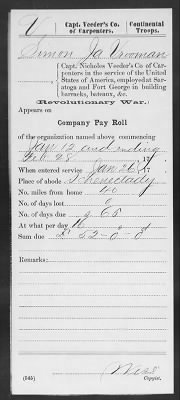 V
Capt. Veeder's Co. of Carpenters.
Continental Troops.
Simon Ja Vrooman
Capt. Nicholas Veeder's Co. of Carpenters
in the service of the United
States of America, employed at Saratoga
and Fort George in building
barracks, bateaux, &c.
Revolutionary War.
Appears on
Company Pay Roll
of the organization named above commencing
Jany 12 and ending
Feb 28 17
When entered service Jan 26 17
Place of abode Schenectady
No. miles from home 40
No. of days lost 0
No. of days due
At what per day
Sum due
Remarks:
(545)
Copyist.